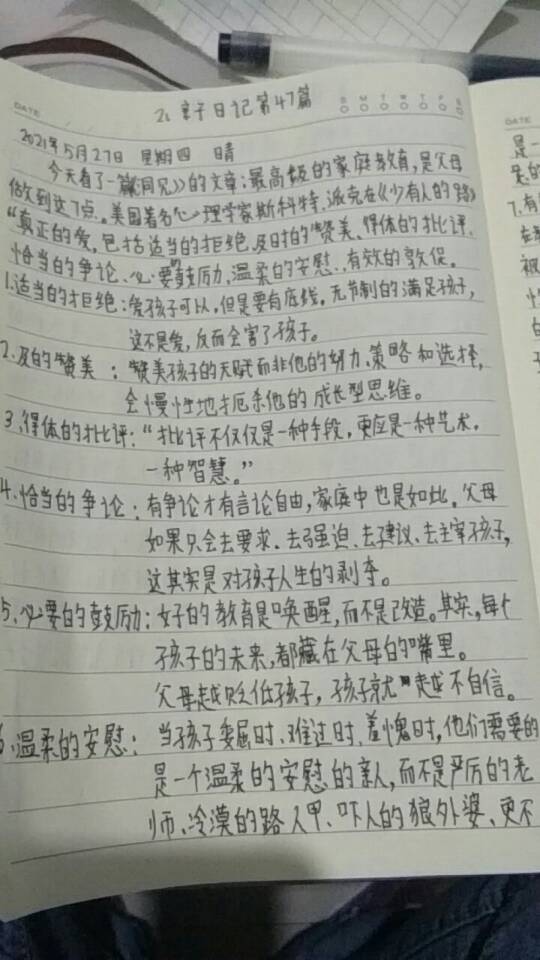 DATE
21 亲子日记第47篇
S M T W T F S
2021年5月27日 星期四 晴
今天看了一篇《洞见》的文章:最高级的家庭教育,是父母
做到这7点。美国著名心理学家斯科特.派克在《少有人的路》
“真正的爱,包括适当的拒绝.及时的赞美、得体的批评、
恰当的争论、必要的鼓励、温柔的安慰、有效的敦促。
1.适当的拒绝:爱孩子可以,但是要有底线。无节制的满足孩子,
这不是爱,反而会害了孩子。
2.及的赞美:赞美孩子的天赋而非他的努力、策略和选择,
会慢性地扼杀他的成长型思维。
3.得体的批评:“批评不仅仅是一种手段,更应是一种艺术,
一种智慧。”
4.恰当的争论:有争论才有言论自由,家庭中也是如此。父母
如果只会去要求.去强迫、去建议、去主宰孩子,
这其实是对孩子人生的剥夺。
5、必要的鼓励:好的教育是唤醒,而不是改造。其实,每个
孩子的未来,都藏在父母的嘴里。
父母越贬低孩子,孩子就越不自信。
6.温柔的安慰:当孩子委屈时、难过时、羞愧时,他们需要的
是一个温柔的安慰的亲人,而不是严厉的老
师、冷漠的路人甲、吓人的狼外婆、更不
DATE
是一
7.有
被